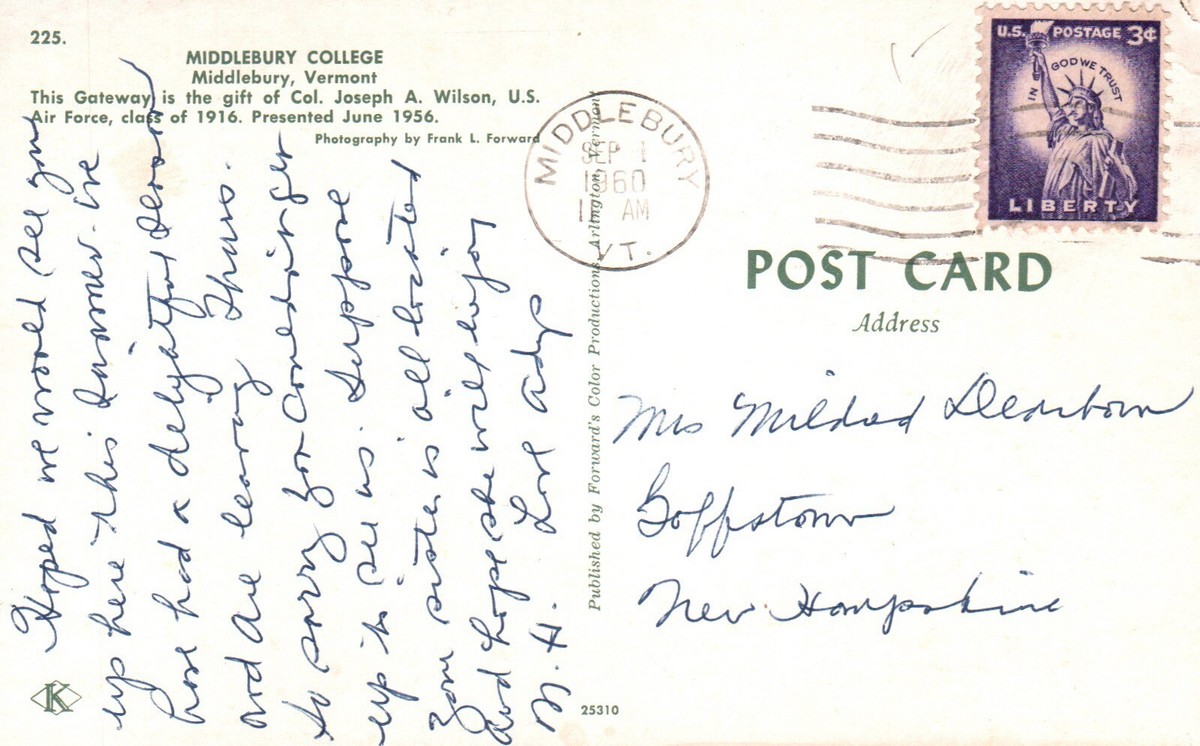 225.
MIDDLEBURY COLLEGE
Middlebury, Vermont
This Gateway is the gift of Col. Joseph A. Wilson, U.S.
Air Force, class of 1916. Presented June 1956.
Photography by Frank L. Forward
Hoped we would see you
up here this summer. We
have had a delightful season
and are leaving Thurs.
So sorry you couldn't get
up to see us. Suppose
your sister is all located
and hope she will enjoy
N. H. Love
K
25310
Published by Forward's Color Productions, Arlington, Vermont
MIDDLEBURY
SEP 1
1960
AM
VT.
U.S. POSTAGE 3¢
IN GOD WE TRUST
LIBERTY
POST CARD
Address
Mrs Mildred Dearborn
Goffstown
New Hampshire